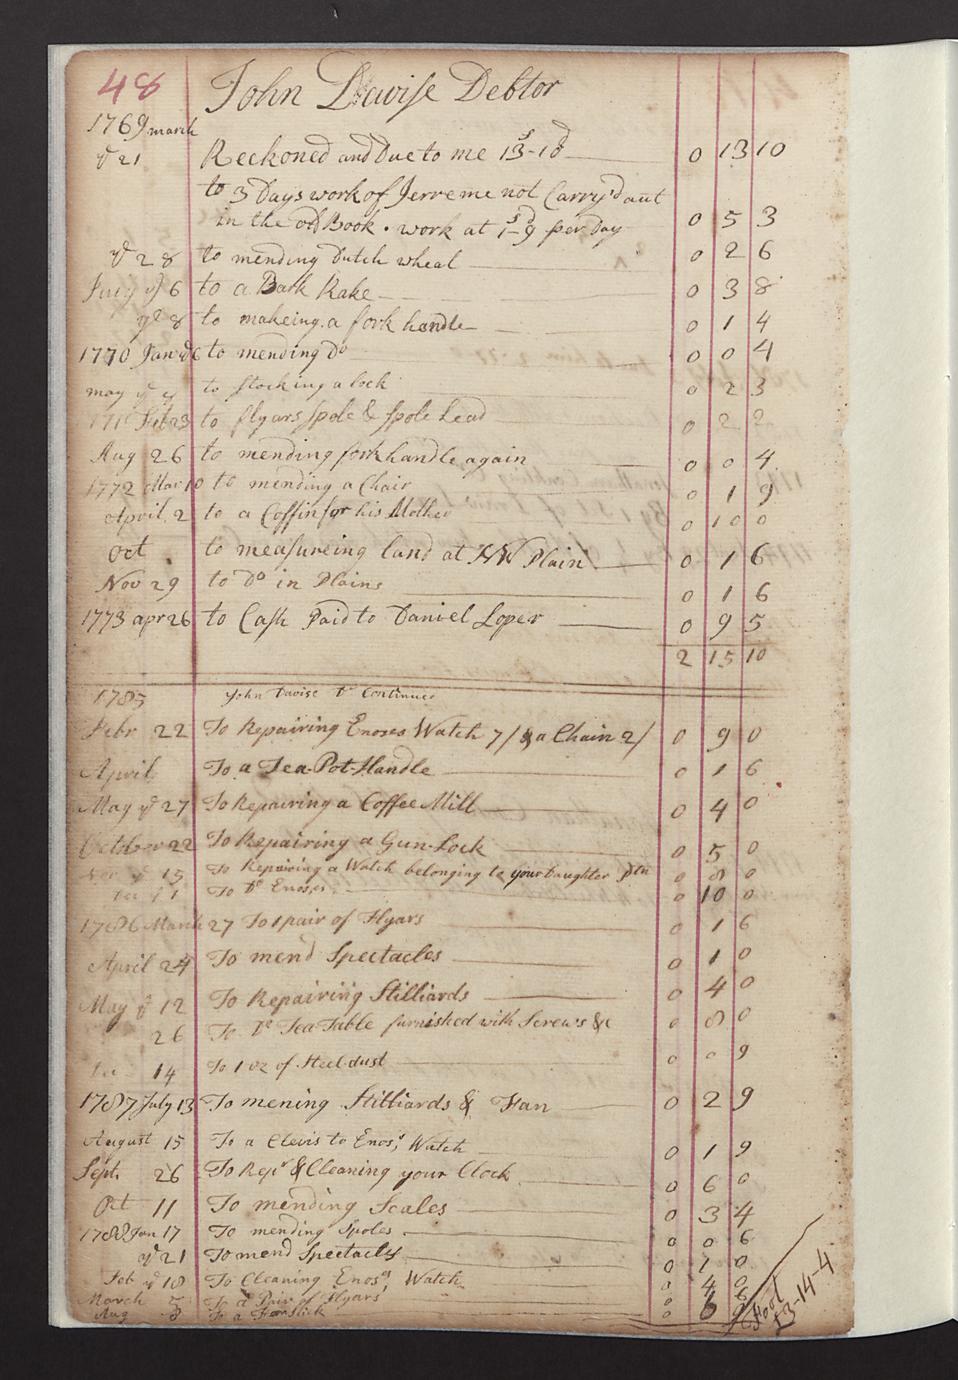 48 John Davise Debtor
1769 march
ye 21 Reckoned and Due to me 13s-10d 0 13 10
to 3 Days work of Jerreme not Carry'd out
in the old Book . work at 1s-9d per Day 0 5 3
ye 28 to mending Dutch wheal 0 2 6
July ye 6 to a Bark Rake 0 3 8
ye 8 to makeing a fork handle 0 1 4
1770 Jan ye 6 to mending Do 0 0 4
may ye to Stocking a lock 0 2 3
1771 Feb 23 to flyars spole & spole Lead 0 2 2
Aug 26 to mending fork handle again 0 0 4
1772 Mar 10 to mending a Chair 0 1 9
April 2 to a Coffin for his Mother 0 10 0
Oct to measureing land at HW Plain 0 1 6
Nov 29 to Do in Plains 0 1 6
1773 apr 26 to Cash Paid to Daniel Loper 0 9 5
2 15 10
1785 John Davise Dr Continued
Febr 22 To Repairing Enoses Watch 7/ & a Chain 2/ 0 9 0
April To a Tea-Pot-Handle 0 1 6
May ye 27 To Repairing a Coffee Mill 0 4 0
October 22 To Repairing a Gun-Lock 0 5 0
Nov ye 15 To Repairing a Watch belonging to your Daughter 0 8 0
To Do Enoses 0 10 0
1786 March 27 To 1 pair of Flyars 0 1 6
April 24 To mend Spectacles 0 1 0
May ye 12 To Repairing Stilliards 0 4 0
26 To Do Tea Table furnished with Screws &c 0 8 0
14 To 1 oz of Steel-dust 0 0 9
1787 July 13 To mening Stilliards & Fan 0 2 9
August 15 To a Clevis to Enos's Watch 0 1 9
Sept. 26 To Repr & Cleaning your Clock 0 6 0
Oct 11 To mending Scales 0 3 4
1788 Jan 17 To mending Spoles 0 0 6
ye 21 To mend Spectacles 0 1 0
Feb ye 18 To Cleaning Enos's Watch 0 4 0
March 5 To a Pair of Flyars 0
Aug 8 To a 0 6
Foot
£3-14-4